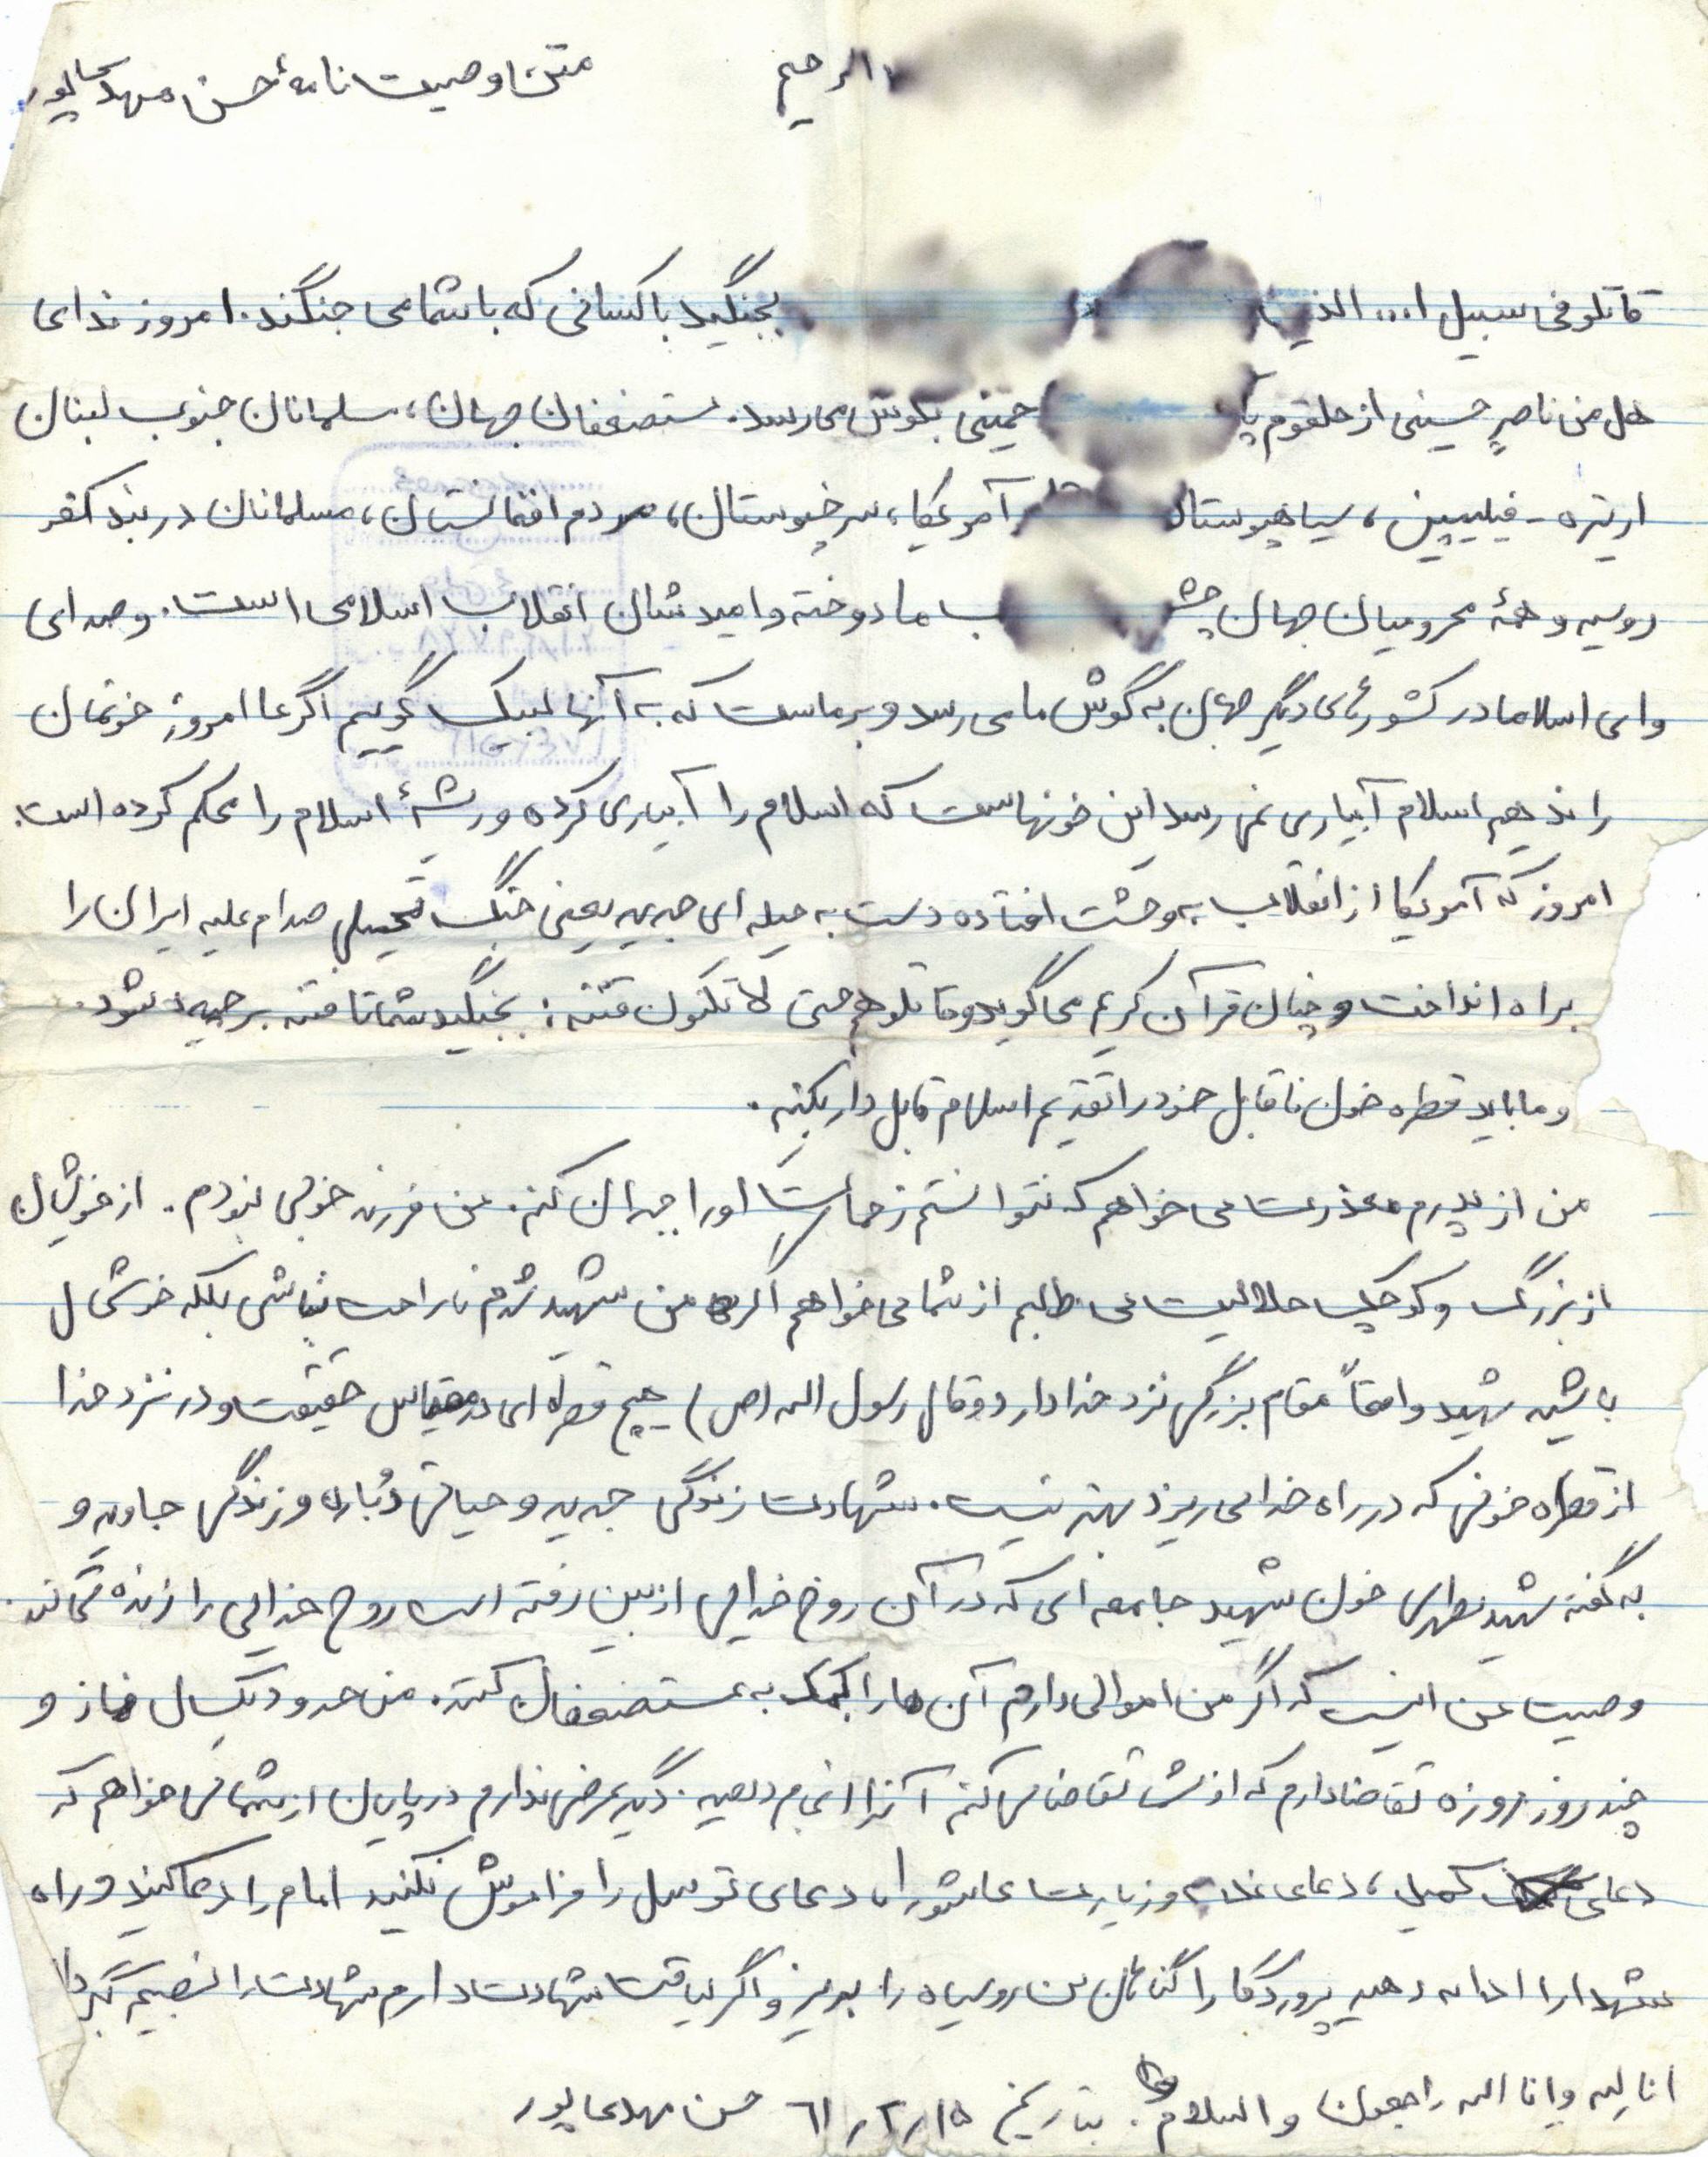 الرحیم متن وصیت نامهٔ حسن مهدی پور
قاتلو فی سبیل ا... الذین بجنگید با کسانی که با شما می جنگند. امروز ندای
هل من ناصرٍ حسینی از حلقوم خمینی بگوش می رسد. مستضعفان جهان، مسلمانان جنوب لبنان
اریتره - فیلیپین، سیاهپوستان آمریکا، سرخپوستان، مردم افغانستان، مسلمانان در بند کفر
روسیه و همهٔ محرومیان جهان چشم ما دوخته و امیدشان انقلاب اسلامی است. و صدای
وای اسلاما در کشورهای دیگر جهان به گوش ما می رسد و بر ماست که به آنها لبیک گوییم اگر ما امروز خونمان
را ندهیم اسلام آبیاری نمی رسد این خونهاست که اسلام را آبیاری کرده و ریشهٔ اسلام را محکم کرده است.
امروز که آمریکا از انقلاب به وحشت افتاده دست به حیله ای جدید یعنی جنگ تحمیلی صدام علیه ایران را
براه انداخت و چنان قرآن کریم می گوید و قاتلو هم حتی لا تکون فتنه: بجنگید شما تا فتنه برچیده شود.
و ما باید قطره خون ناقابل خود را تقدیم اسلام قابل دار بکنیم.
من از پدرم معذرت می خواهم که نتوانستم زحمات او را جبران کنم. من فرزند خوبی نبودم. از خویشان
از بزرگ و کوچک حلالیت می طلبم از شما می خواهم اگر من شهید شدم ناراحت نباشی بلکه خوشحال
باشید شهید واقعاً مقام بزرگی نزد خدا دارد و قال رسول الله (ص) هیچ قطره ای در مقیاس حقیقت و در نزد خدا
از قطره خونی که در راه خدا می ریزد بهتر نیست. شهادت زندگی جدید و حیاتی دُباره و زندگی جاوید و
به گفته شهید مطهری خون شهید جامعه ای که در آن روح خدایی از بین رفته است روح خدایی را زنده می کند.
وصیت من اینست که اگر من اموالی دارم آن ها را کمک به مستضعفان کنید. من حدود یکسال نماز و
چند روز روزه تقاضا دارم که از شما تقاضا می کنم آنرا انجام دهید. دگیر عرضی ندارم در پایان از شما می خواهم که
دعای کمیل، دعای ندبه و زیارت عاشورا، دعای توسل را فراموش نکنید امام را دعا کنید و راه
شهدا را ادامه دهید پروردگارا گناهان من روسیاه را بریز و اگر لیاقت شهادت دارم شهادت را نصیبم بگردان
انا لله و انا الیه راجعون والسلام. بتاریخ ۶۱/۲/۱۵ حسن مهدی پور